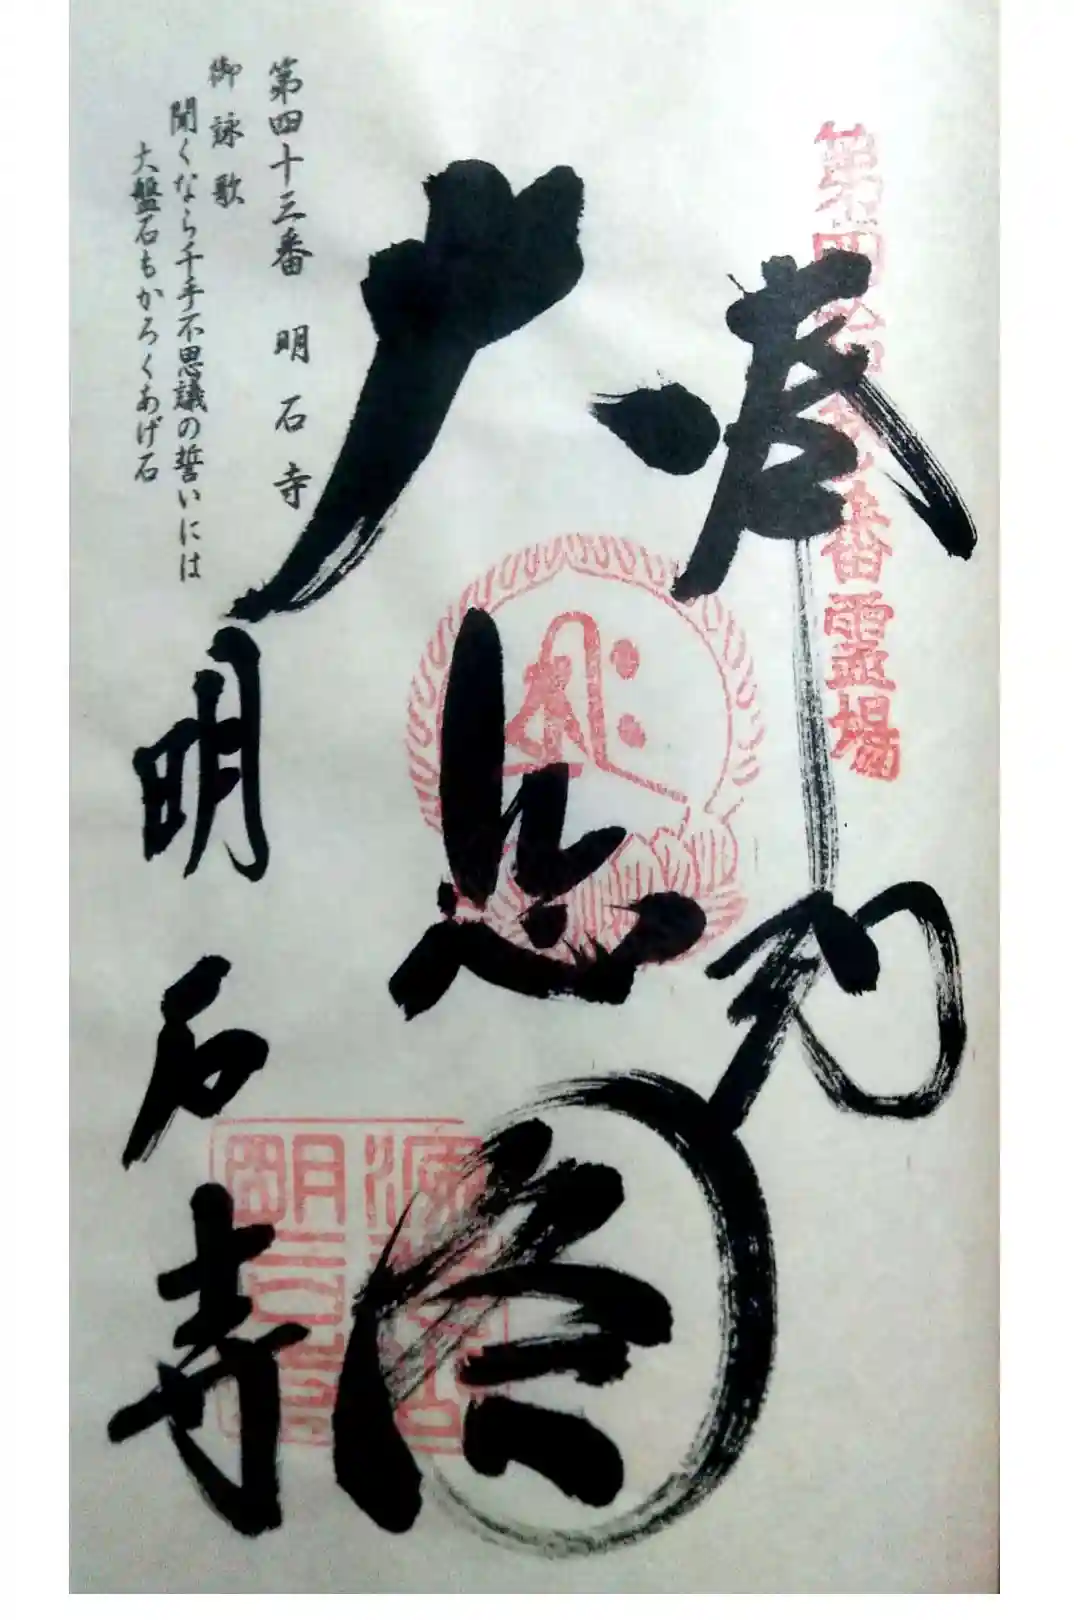 第四拾三番霊場
奉納
大悲閣
明石寺
第四十三番　明石寺
御詠歌
聞くなら千手不思議の誓いには
大盤石もかろくあげ石